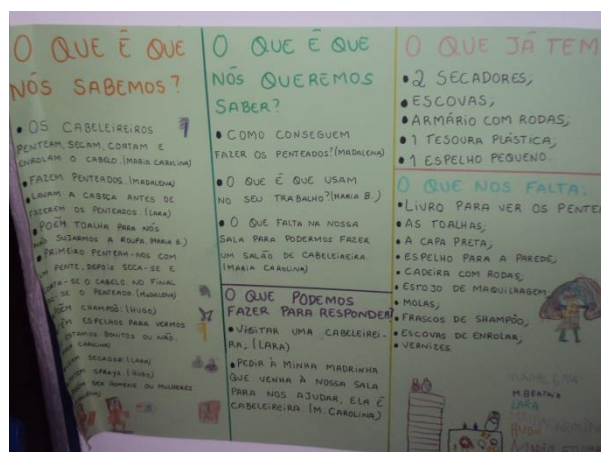 O QUE É QUE
NÓS SABEMOS?
• OS CABELEIREIROS
PENTEAM, SECAM, CORTAM E
ENROLAM O CABELO. (MARIA CAROLINA)
• FAZEM PENTEADOS. (MADALENA)
• LAVAM A CABEÇA ANTES DE
FAZEREM OS PENTEADOS. (LARA)
• PÕEM TOALHA PARA NÓS
NÃO SUJARMOS A ROUPA. (MARIA B.)
• PRIMEIRO PENTEAM-NOS COM
UM PENTE, DEPOIS SECA-SE E
CORTA-SE O CABELO. NO FINAL
SE O PENTEADO. (MADALENA)
PÕEM CHAMPÔ. (HUGO)
TÊM ESPELHOS PARA VERMOS
ESTAMOS BONITOS OU NÃO.
CAROLINA)
SECADOR. (LARA)
SPRAYS. (HUGO)
SER HOMENS OU MULHERES
O QUE É QUE
NÓS QUEREMOS
SABER?
• COMO CONSEGUEM
FAZER OS PENTEADOS? (MADALENA)
• O QUE É QUE USAM
NO SEU TRABALHO? (MARIA B.)
• O QUE FALTA NA NOSSA
SALA PARA PODERMOS FAZER
UM SALÃO DE CABELEIREIRA.
(MARIA CAROLINA)
O QUE PODEMOS
FAZER PARA RESPONDER
• VISITAR UMA CABELEIREI-
RA, (LARA)
• PEDIR À MINHA MADRINHA
QUE VENHA À NOSSA SALA
PARA NOS AJUDAR, ELA É
CABELEIREIRA. (M. CAROLINA)
O QUE JÁ TEM
• 2 SECADORES;
• ESCOVAS;
• ARMÁRIO COM RODAS;
• 1 TESOURA PLÁSTICA;
• 1 ESPELHO PEQUENO.
O QUE NOS FALTA:
• LIVRO PARA VER OS PENTE
• AS TOALHAS;
• A CAPA PRETA;
• ESPELHO PARA A PAREDE;
• CADEIRA COM RODAS;
• ESTOJO DE MAQUILHAGEM
• MOLAS;
• FRASCOS DE SHAMPÔO;
• ESCOVAS DE ENROLAR;
• VERNIZES.
LARA
HUGO